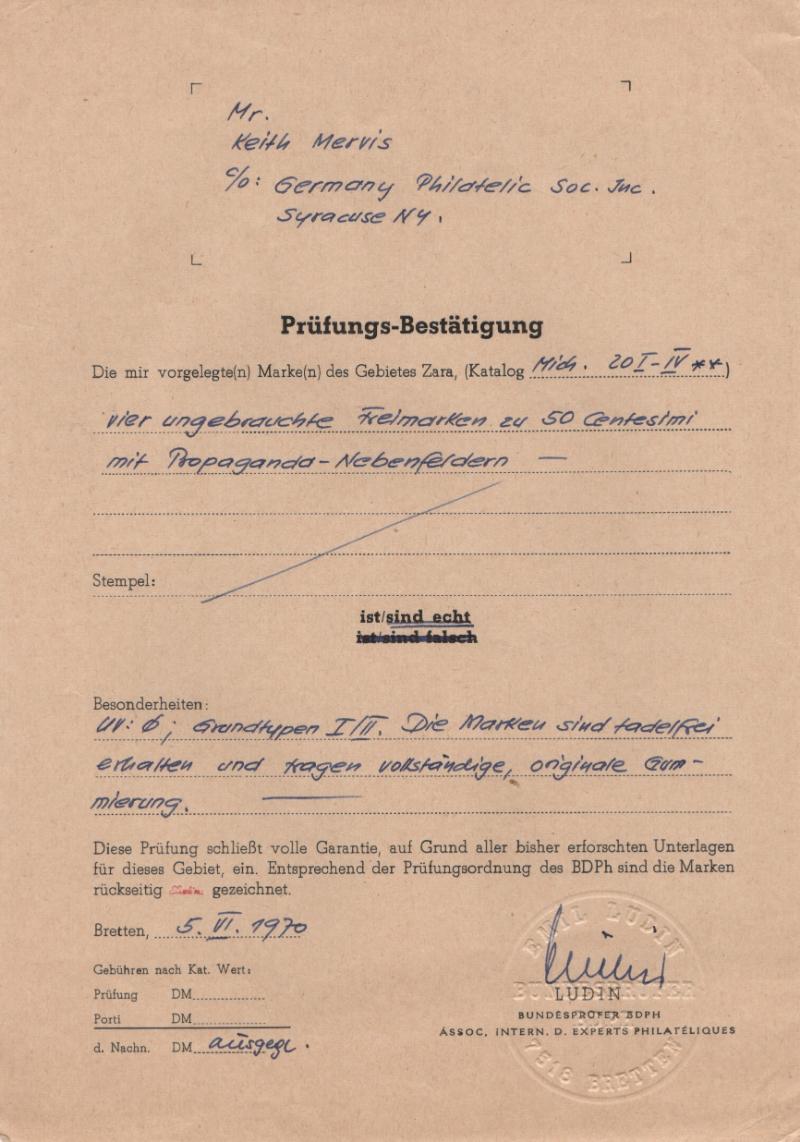 Mr.
Keith Mervis
c/o: Germany Philatelic Soc. Inc.
Syracuse NY.
Prüfungs-Bestätigung
Die mir vorgelegte(n) Marke(n) des Gebietes Zara, (Katalog Mich. 20 I-IV **)
vier ungebrauchte Freimarken zu 50 Centesimi
mit Propaganda-Nebenfeldern —
Stempel:
ist/sind echt
ist/sind falsch
Besonderheiten:
UV: Ø; Grundtypen I/II. Die Marken sind tadelfrei
erhalten und tragen vollständige, originale Gum-
mierung. —
Diese Prüfung schließt volle Garantie, auf Grund aller bisher erforschten Unterlagen
für dieses Gebiet, ein. Entsprechend der Prüfungsordnung des BDPh sind die Marken
rückseitig gezeichnet.
Bretten, 5. VI. 1970
Gebühren nach Kat. Wert:
Prüfung DM
Porti DM
d. Nachn. DM ausgegl.
EMIL LUDIN
BUNDESPRÜFER
7518 BRETTEN
LUDIN
BUNDESPRÜFER BDPH
ASSOC. INTERN. D. EXPERTS PHILATÉLIQUES